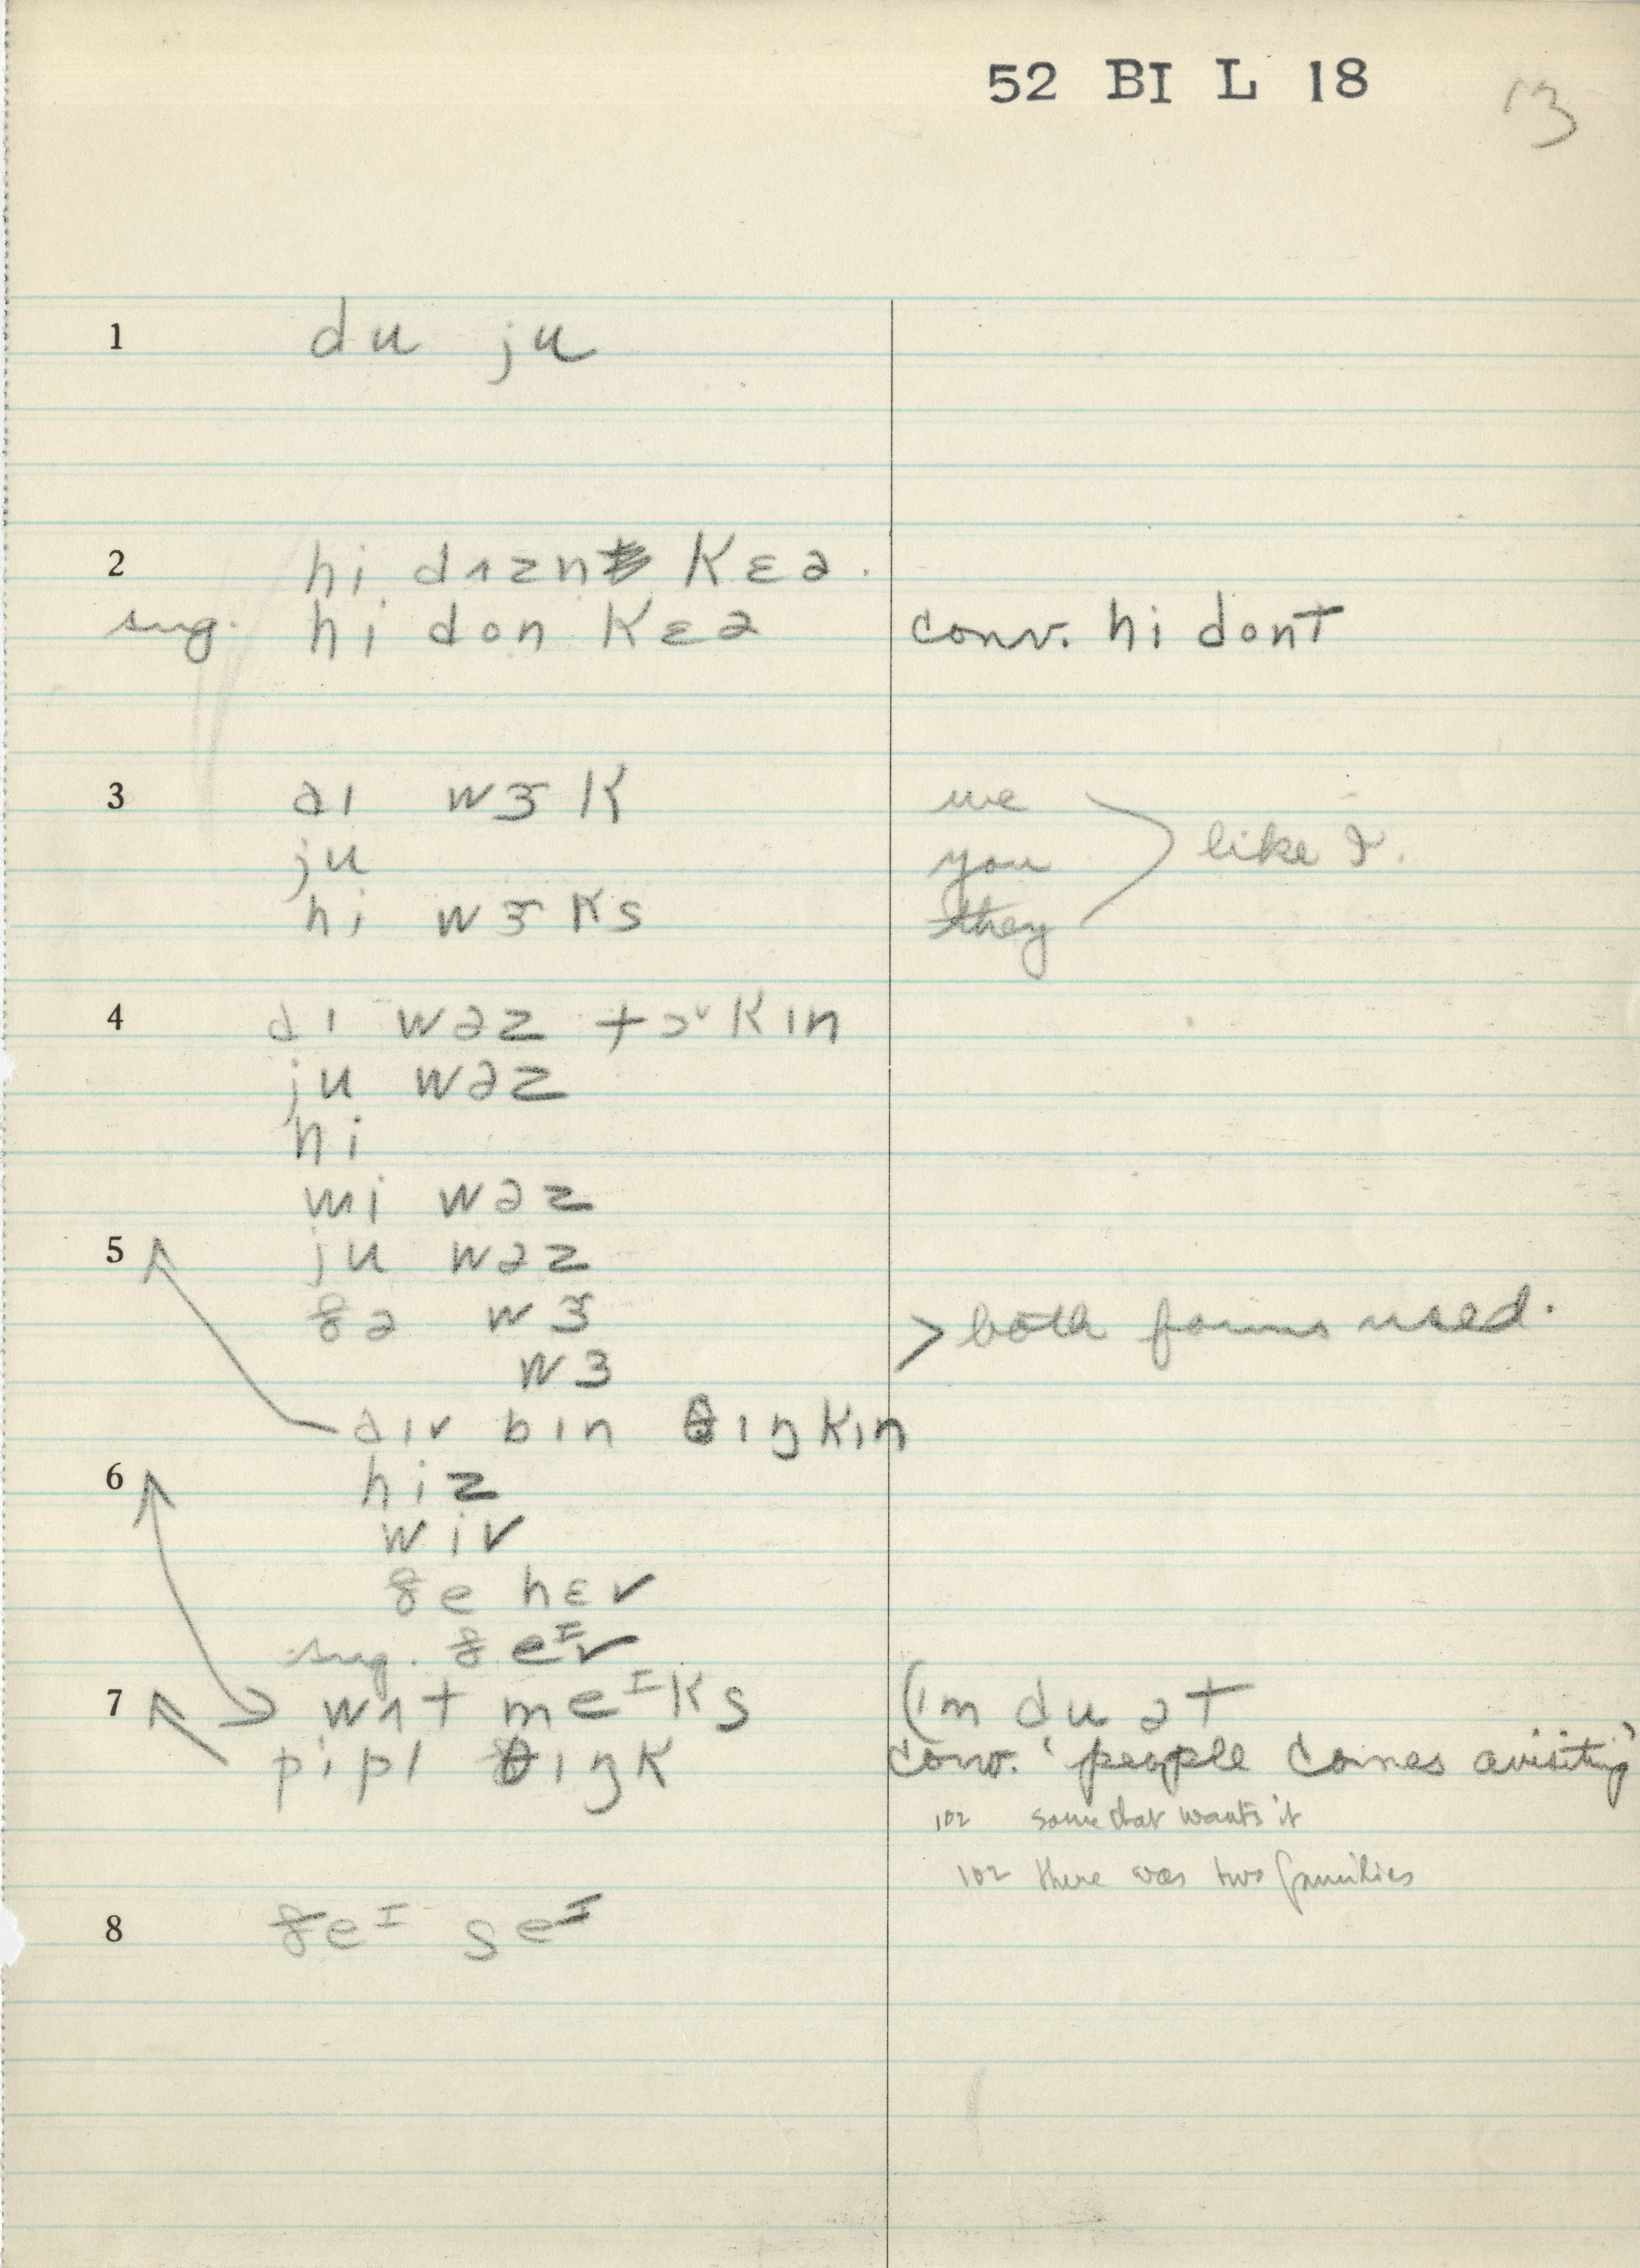 52 BI L 18 13
1 du ju
2 hi dʌznt kɛə.
sug. hi don kɛə conv. hi dont
3 aɪ wɝk we
ju you like I.
hi wɝks they
4 aɪ wəz tɔkɪn
ju wəz
hi
wi wəz
5 ju wəz
ðə wɝ > both forms used.
wɜ
aɪv bɪn θɪŋkɪn
6 hiz
wiv
ðe hɛv
sug. ðeɪv
7 wʌt meɪks (ɪm du ət
pipl θɪŋk conv. 'people comes avisiting'
102 some that wants it
102 there was two families
8 ðeɪ seɪ